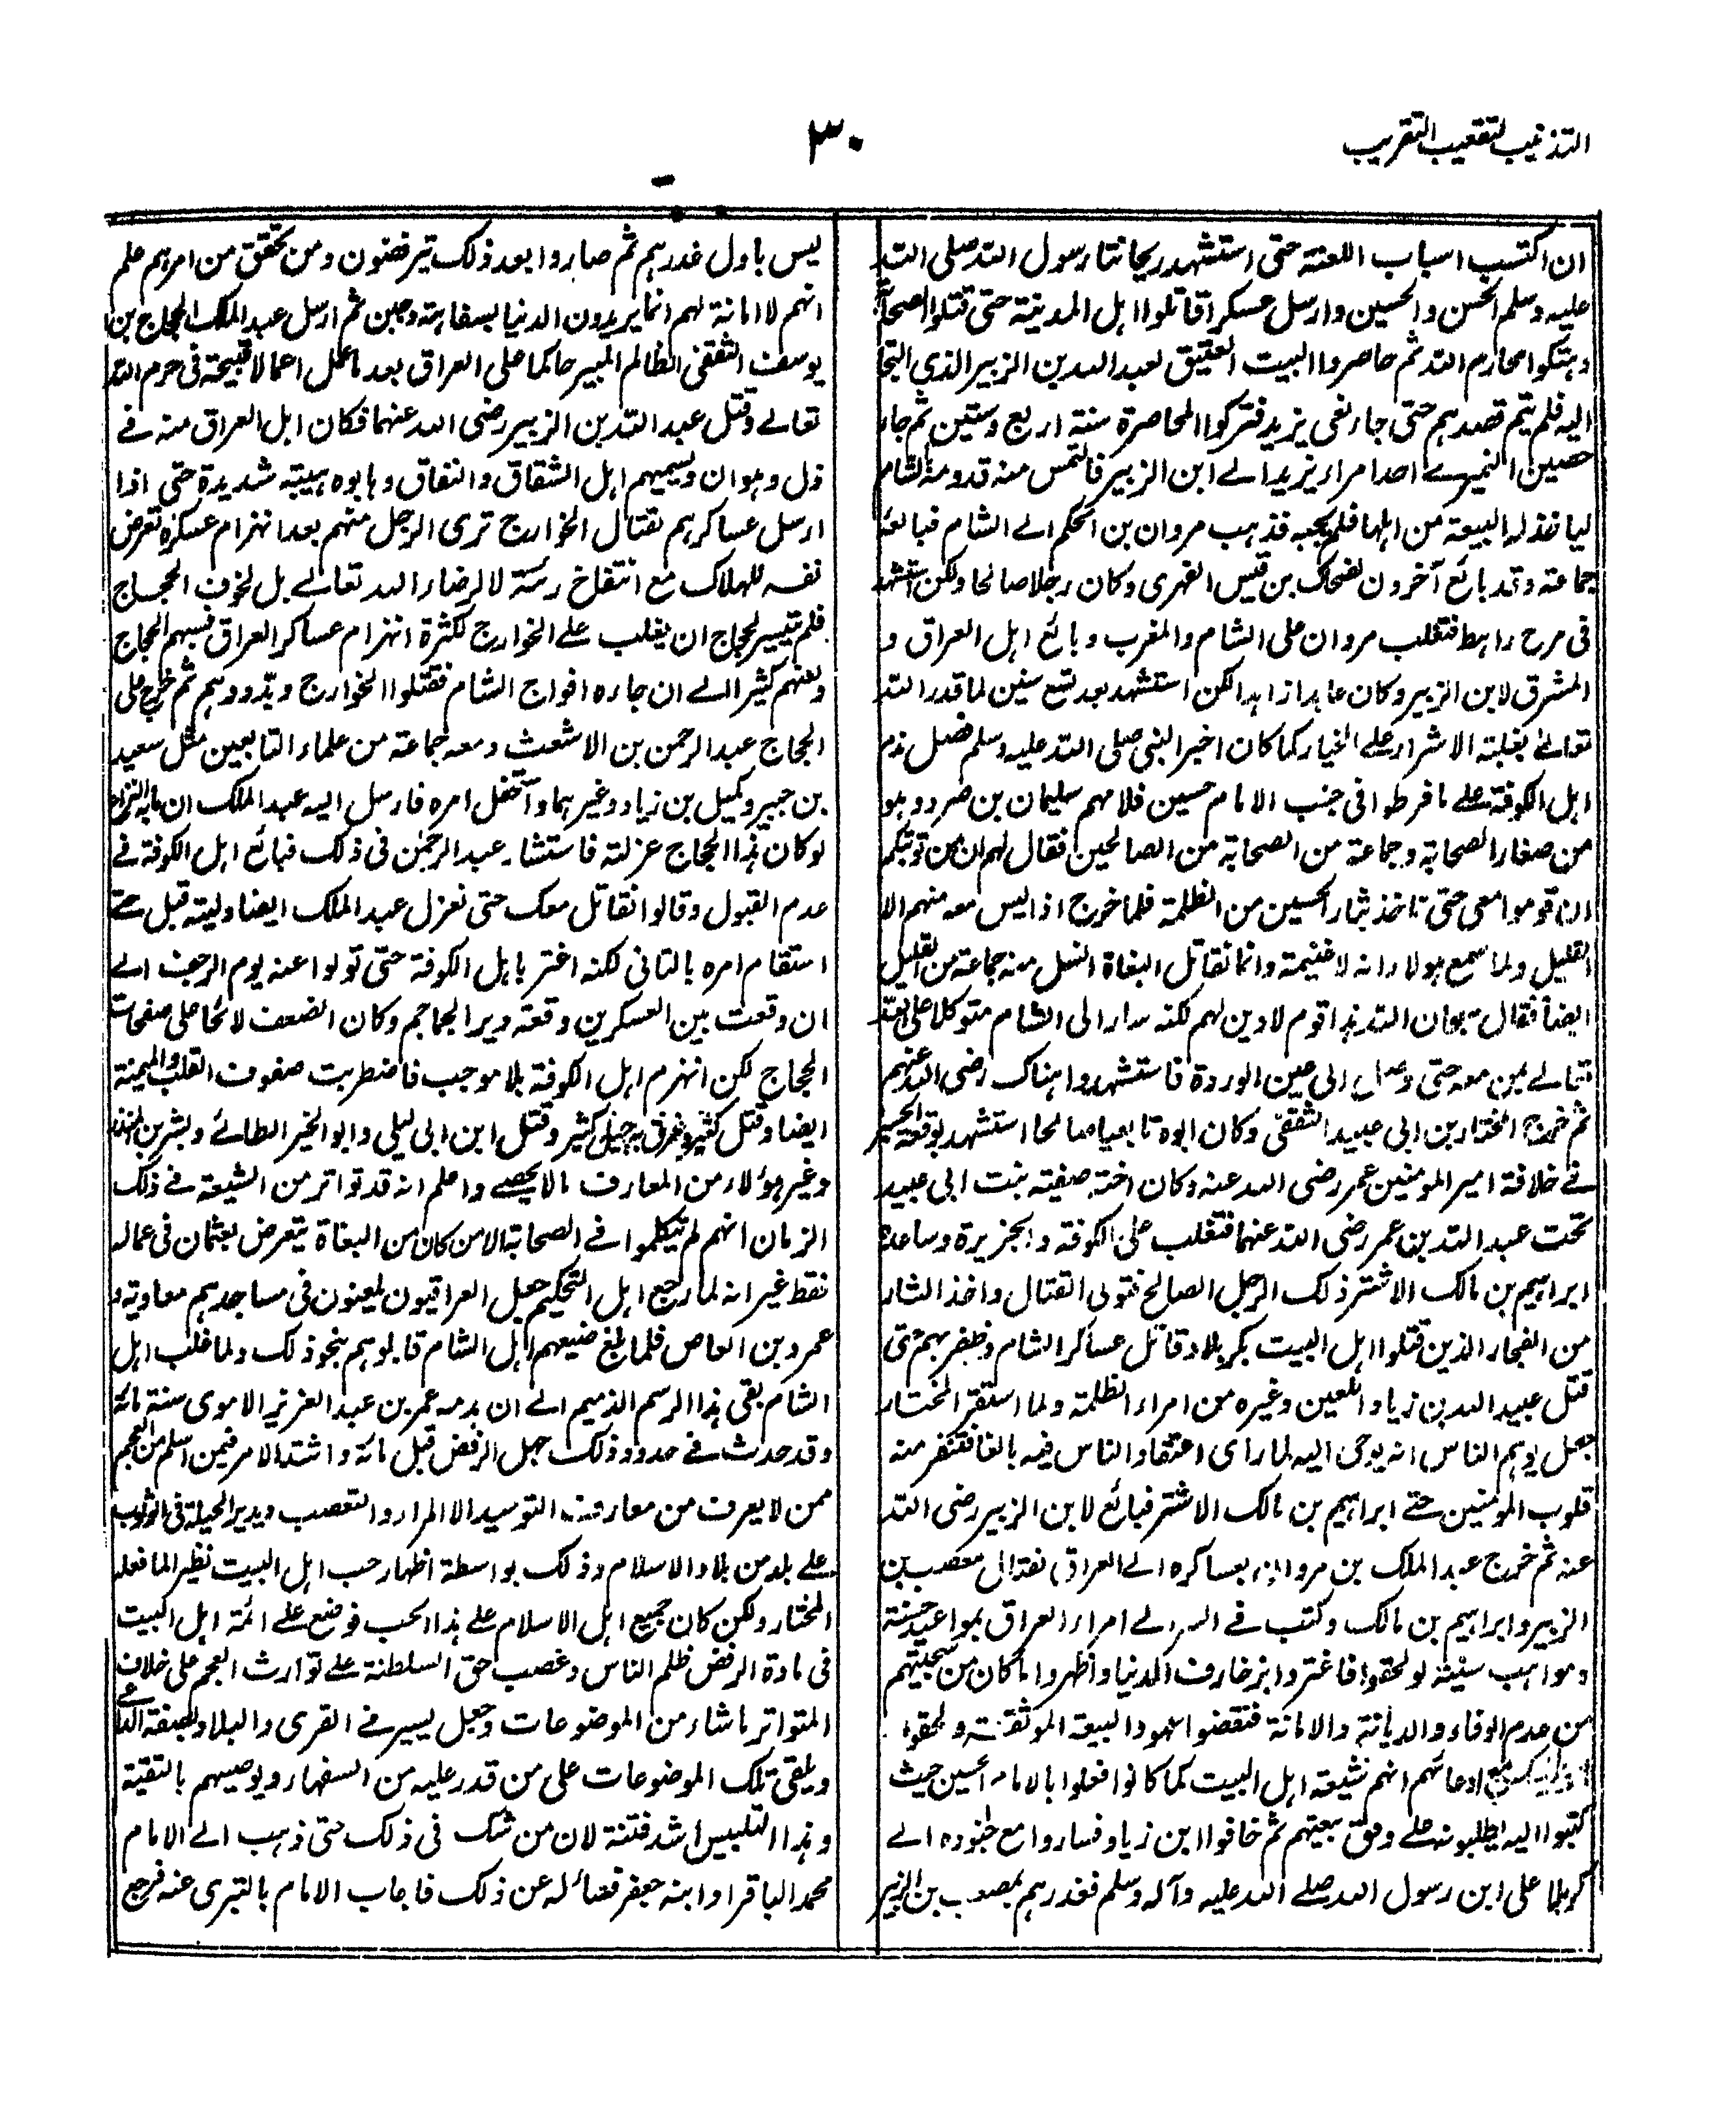 التذنيب لتعقيب التقريب
٣٠
ان اكتسب اسباب اللعنة حتى استشهد ريحانتا رسول الله صلى الله
عليه وسلم الحسن والحسين وارسل عسكرا قاتلوا اهل المدينة حتى قتلوا الصحابة
وهتكوا محارم الله ثم حاصروا البيت العتيق لعبد الله بن الزبير الذي التجا
اليه فلم يتم قصدهم حتى جاء نعى يزيد فتركوا المحاصرة سنة اربع وستين ثم جاء
حصين النميرے احد امراء يزيد الے ابن الزبير فالتمس منه قدومه الشام
لياخذ له البيعة من اهلها فلم يجبه فذهب مروان بن الحكم الے الشام فبايعه
جماعة وقد بائع آخرون لضحاك بن قيس الفهرى وكان رجلا صالحا ولكن استشهد
فى مرج راهط فتغلب مروان على الشام والمغرب وبائع اهل العراق و
المشرق لابن الزبير وكان عابدا زاهدا لكن استشهد بعد تسع سنين لما قدر الله
تعالے بغلبة الاشرار علے الخيار كما كان اخبر النبى صلى الله عليه وسلم فضل ندم
اهل الكوفة علے ما فرطوا فى جنب الامام حسين فلامهم سليمان بن صرد وهو
من صغار الصحابة وجماعة من الصحابة من الصالحين فقال لهم ان من توبتكم
ان قوموا معى حتى ناخذ بثار الحسين من الظلمة فلما خرج اذا ليس معه منهم الا
القليل ولما سمع هولاء انه لا غنيمة وانما نقاتل البغاة انسل منه جماعة من القليل
ايضاً فقال سبحان الله هذا قوم لا دين لهم لكنه سار الى الشام متوكلا على الله
تعالے بمن معه حتى وصل الى عين الوردة فاستشهدوا هناك رضى الله عنهم
ثم خرج المختار بن ابى عبيد الثقفى وكان ابوه تابعيا صالحا استشهد بوقعة الجسر
فے خلافة امير المومنين عمر رضى الله عنه وكان اخته صفية بنت ابى عبيد
تحت عبد الله بن عمر رضى الله عنهما فتغلب على الكوفة والجزيرة وساعده
ابراهيم بن مالك الاشتر ذلك الرجل الصالح فتولى القتال واخذ الثار
من الفجار الذين قتلوا اهل البيت بكربلاء وقاتل عساكر الشام وظفر بهم حتى
قتل عبيد الله بن زياد اللعين وغيره من امراء الظلمة ولما استقر المختار
جعل يوهم الناس انه يوحى اليه لما رأى اعتقاد الناس فيه بالغا فتنفر منه
قلوب المومنين حتے ابراهيم بن مالك الاشتر فبائع لابن الزبير رضى الله
عنه ثم خرج عبد الملك بن مروان بعساكره الے العراق لقتال مصعب بن
الزبير وابراهيم بن مالك وكتب فے السر الے امراء العراق بمواعيد حسنة
ومواهب سنية لو لحقوا فاغتروا بزخارف الدنيا واظهروا ما كان من سجيتهم
من عدم الوفاء والديانة والامانة فنقضوا العهود البيعة الموثقة ولحقوا
مع ادعائهم انهم شيعة اهل البيت كما كانوا فعلوا بالامام الحسين حيث
كتبوا اليه يطلبونه علے وفق بيعتهم ثم خافوا ابن زياد فساروا مع جنوده الے
كربلا على ابن رسول الله صلے الله عليه وآله وسلم فغدرهم بمصعب بن الزبير
ليس باول غدرهم ثم صاروا بعد ذلك يترفضون ومن تحقق من امرهم علم
انهم لا امانة لهم انما يريدون الدنيا بسفاهة وجبن ثم ارسل عبد الملك الحجاج بن
يوسف الثقفى الظالم المبير حاكما على العراق بعد ما عمل اعمالا قبيحة فى حرم الله
تعالے وقتل عبد الله بن الزبير رضى الله عنهما فكان اهل العراق منه فے
ذل وهوان ويسميهم اهل الشقاق والنفاق وهابوه هيبة شديدة حتى اذا
ارسل عساكرهم لقتال الخوارج ترى الرجل منهم بعد انهزام عسكره تعرض
نفسه للهلاك مع انتفاخ رئته لا لرضاء الله تعالے بل لخوف الحجاج
فلم تيسر لحجاج ان يغلب علے الخوارج لكثرة انهزام عساكر العراق فسبهم الحجاج
ولعنهم كثيرا الے ان جاءه افواج الشام فقتلوا الخوارج وبددوهم ثم خرج على
الحجاج عبد الرحمن بن الاشعث ومعه جماعة من علماء التابعين مثل سعيد
بن جبير وكميل بن زياد وغيرهما واحتفل امره فارسل اليه عبد الملك ان مابه النزاع
لو كان هذا الحجاج عزلته فاستشار عبد الرحمٰن فى ذلك فبائع اهل الكوفة فے
عدم القبول وقالوا نقاتل معك حتى نعزل عبد الملك ايضا وليته قبل حتے
استقام امره بالتانى لكنه اغتر باهل الكوفة حتى تولوا عنه يوم الزحف الے
ان وقعت بين العسكرين وقعة دير الجماجم وكان الضعف لائحا على صفحات
الحجاج لكن انهزم اهل الكوفة بلا موجب فاضطربت صفوف القلب والميمنة
ايضا وقتل كثير وغرق بدجيل كثير وقتل ابن ابى ليلى وابو الخير الطائے وبشر بن المنذر
وغير هؤلاء من المعارف مالا يحصے واعلم انه قد تواتر من الشيعة فے ذلك
الزمان انهم لم يتكلموا فے الصحابة الا من كان من البغاة يتعرض لعثمان فى عماله
فقط غير انه لما رجع اهل التحكيم جعل العراقيون يلعنون فى مساجدهم معاوية و
عمرو بن العاص فلما بلغ ضيعهم اهل الشام قابلوهم بنحو ذلك ولما غلب اهل
الشام بقى هذا الرسم الذميم الے ان هدمه عمر بن عبد العزيز الاموى سنة مائة
وقد حدث فے حدود ذلك جهل الرفض قبل مائة واشتد الامر فيمن اسلم من العجم
ممن لا يعرف من معارف التوحيد الا المراء والتعصب ويدير الحيلة فى الوثوب
علے بلد من بلاد الاسلام وذلك بواسطة اظهار حب اهل البيت نظير المافعله
المختار ولكن كان جميع اهل الاسلام علے هذا الحب فوضع علے ائمة اهل البيت
فى مادة الرفض ظلم الناس وغصب حق السلطنة علے توارث العجم على خلاف
المتواتر ماشاء من الموضوعات وجعل يسير فے القرى والبلاد بصفة الداعے
ويلقى تلك الموضوعات على من قدر عليه من السفهاء ويوصيهم بالتقية
وهذا التلبيس اشد فتنة لان من شك فى ذلك حتى ذهب الے الامام
محمد الباقر او ابنه جعفر فسائله عن ذلك فاجاب الامام بالتبرى عنه فرجع